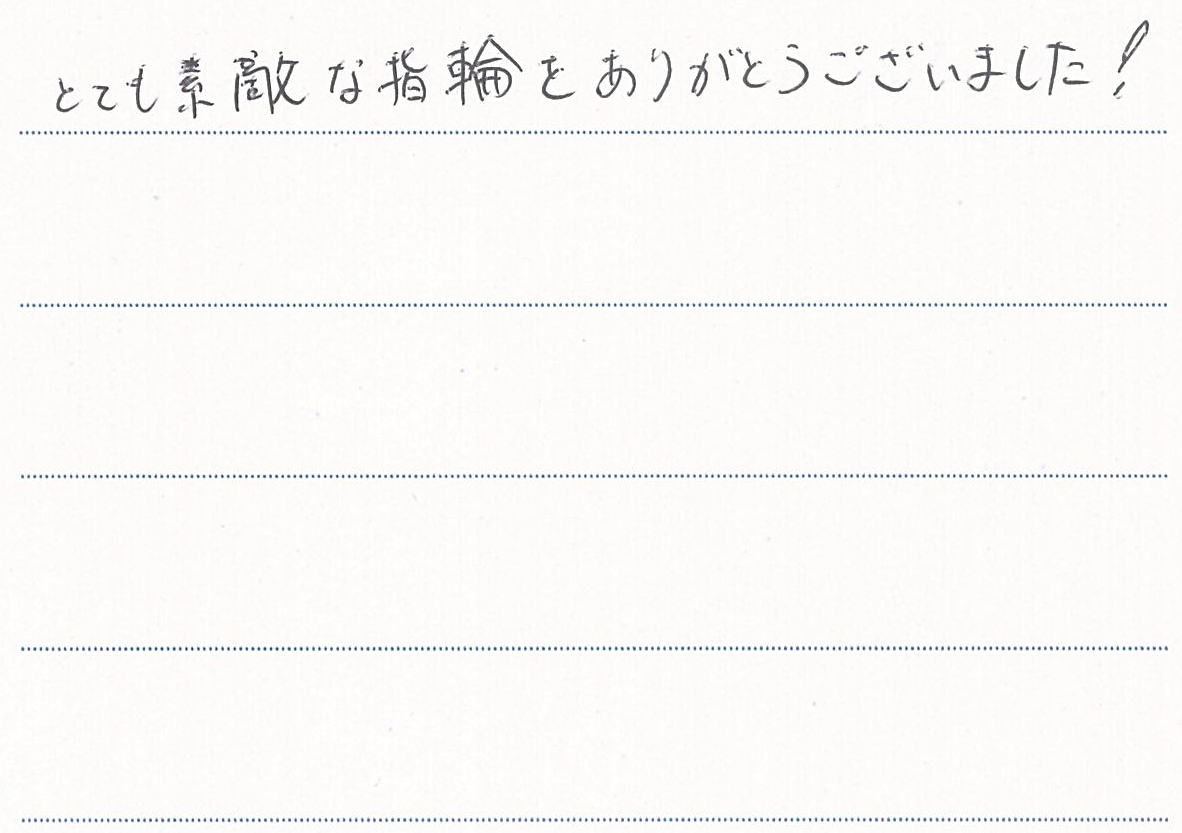 とても素敵な指輪をありがとうございました！